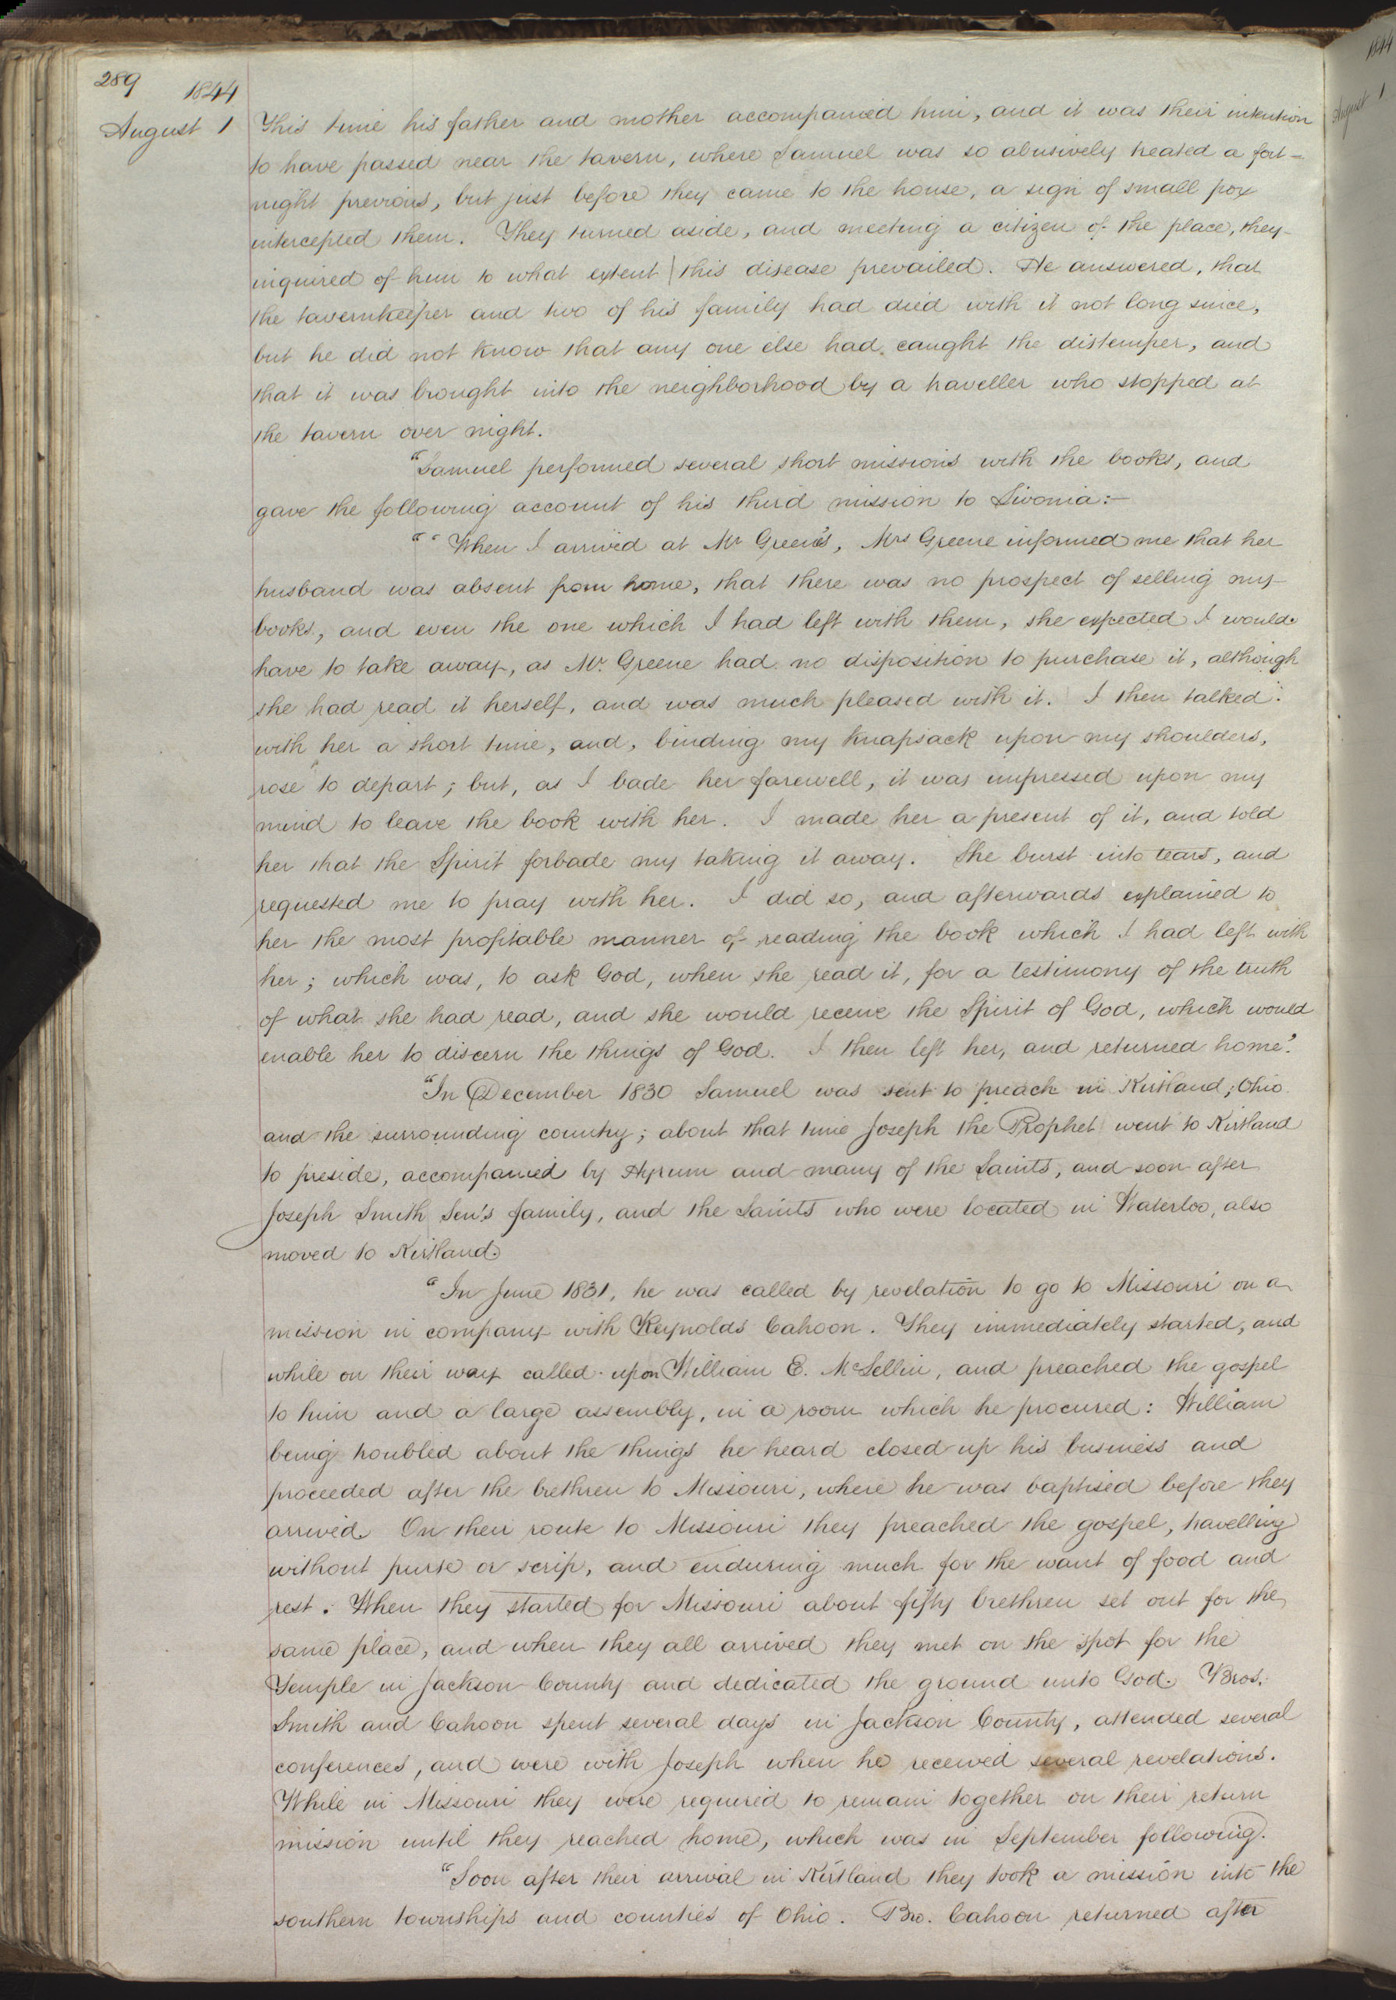 289 1844
August 1 This time his father and mother accompanied him, and it was their intention
to have passed near the tavern, where Samuel was so abusively treated a fort=
night previous, but just before they came to the house, a sign of small pox
intercepted them. They turned aside, and meeting a citizen of the place, they
inquired of him to what extent this disease prevailed. He answered, that
the tavernkeeper and two of his family had died with it not long since,
but he did not know that any one else had caught the distemper, and
that it was brought into the neighborhood by a traveller who stopped at
the tavern over night.
"Samuel performed several short missions with the books, and
gave the following account of his third mission to Livonia:—
"'When I arrived at Mr Greene's, Mrs Greene informed me that her
husband was absent from home, that there was no prospect of selling my
books, and even the one which I had left with them, she expected I would
have to take away, as Mr. Greene had no disposition to purchase it, although
she had read it herself, and was much pleased with it. I then talked
with her a short time, and, binding my knapsack upon my shoulders,
rose to depart; but, as I bade her farewell, it was impressed upon my
mind to leave the book with her. I made her a present of it, and told
her that the Spirit forbade my taking it away. She burst into tears, and
requested me to pray with her. I did so, and afterwards explained to
her the most profitable manner of reading the book which I had left with
her; which was, to ask God, when she read it, for a testimony of the truth
of what she had read, and she would receive the Spirit of God, which would
enable her to discern the things of God. I then left her, and returned home.'
"In December 1830 Samuel was sent to preach in Kirtland, Ohio
and the surrounding country; about that time Joseph the Prophet went to Kirtland
to preside, accompanied by Hyrum and many of the Saints, and soon after
Joseph Smith Sen's family, and the Saints who were located in Waterloo, also
moved to Kirtland.
"In June 1831, he was called by revelation to go to Missouri on a
mission in company with Reynolds Cahoon. They immediately started, and
while on their way called upon William E. McLellin, and preached the gospel
to him and a large assembly, in a room which he procured: William
being troubled about the things he heard closed up his business and
proceeded after the brethren to Missouri, where he was baptised before they
arrived. On their route to Missouri they preached the gospel, travelling
without purse or scrip, and enduring much for the want of food and
rest. When they started for Missouri about fifty brethren set out for the
same place, and when they all arrived they met on the spot for the
Temple in Jackson County and dedicated the ground unto God. Bros.
Smith and Cahoon spent several days in Jackson County, attended several
conferences, and were with Joseph when he received several revelations.
While in Missouri they were required to remain together on their return
mission until they reached home, which was in September following.
"Soon after their arrival in Kirtland they took a mission into the
southern townships and counties of Ohio. Bro. Cahoon returned after
1844
August 1